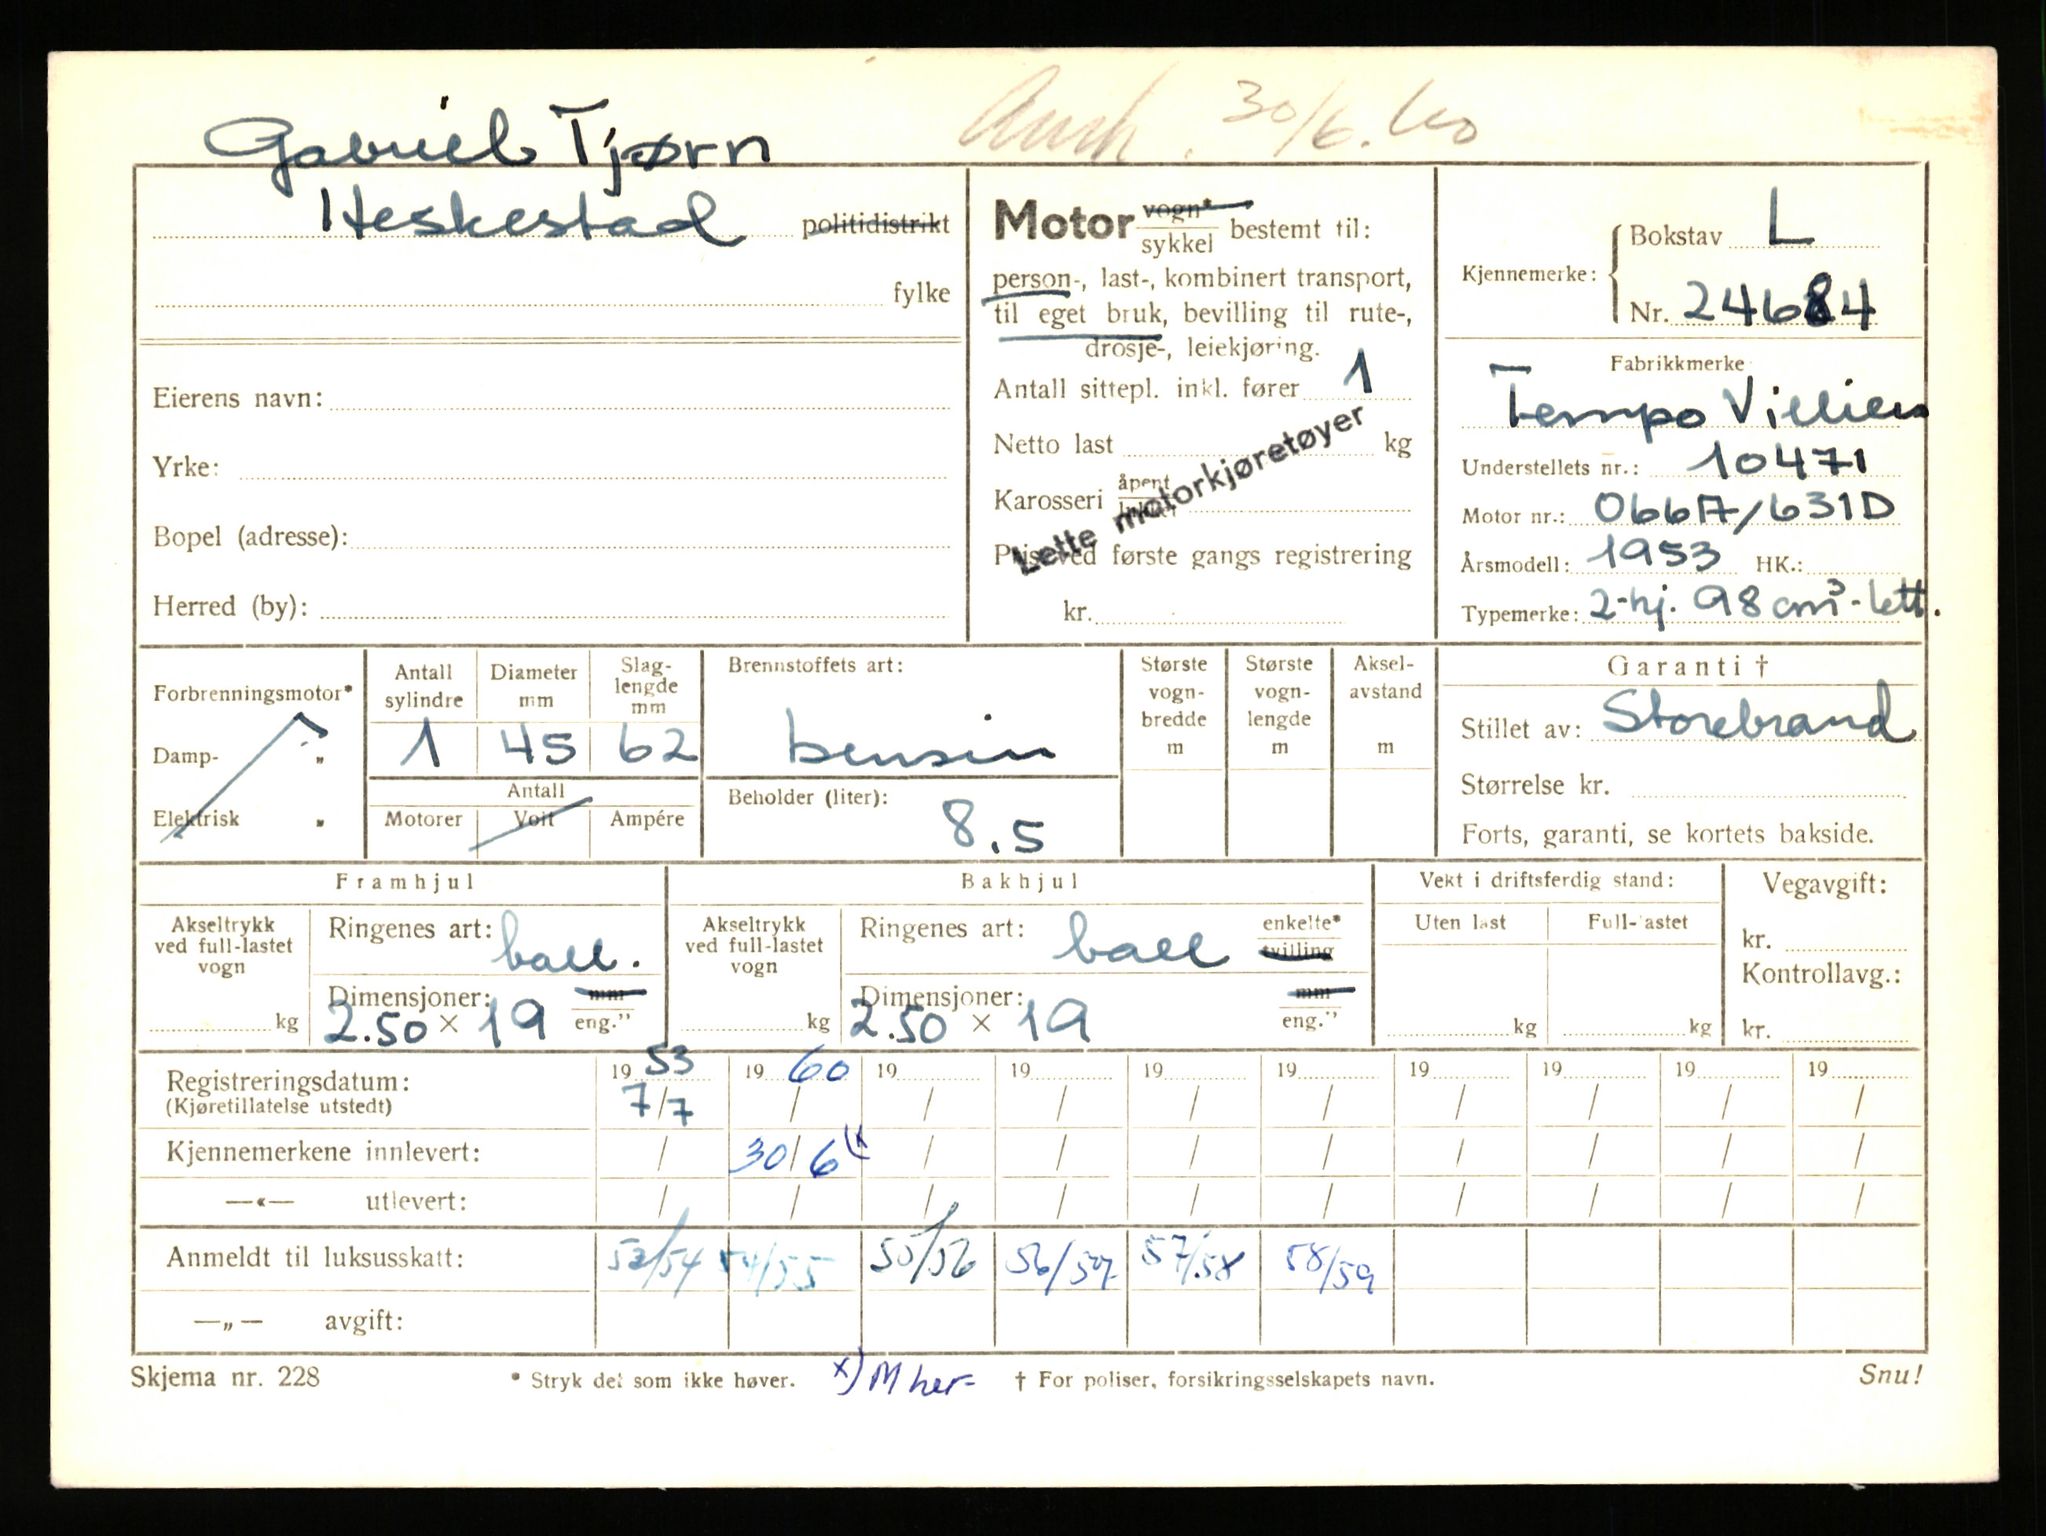 Avsk. 30/6.60
Gabriel Tjørn
Heskestad politidistrikt
fylke
Eierens navn:
Yrke:
Bopel (adresse):
Herred (by):
Motor vogn* / sykkel bestemt til:
person-, last-, kombinert transport,
til eget bruk, bevilling til rute-,
drosje-, leiekjøring.
Antall sittepl. inkl. fører 1
Netto last kg
Karosseri åpent / lukket
Lette motorkjøretøyer
Pris ved første gangs registrering
kr.
Kjennemerke: Bokstav L
Nr. 24684
Fabrikkmerke
Tempo Villiers
Understellets nr.: 10471
Motor nr.: 066A/631D
Årsmodell: 1953 HK.:
Typemerke: 2-hj. 98 cm³-lett.
Forbrenningsmotor*
Damp- "
Elektrisk "
Antall sylindre 1
Diameter mm 45
Slag-lengde mm 62
Antall
Motorer Volt Ampére
Brennstoffets art:
bensin
Beholder (liter):
8.5
Største vogn-bredde m
Største vogn-lengde m
Aksel-avstand m
Garanti †
Stillet av: Storebrand
Størrelse kr.
Forts, garanti, se kortets bakside.
Framhjul
Akseltrykk ved full-lastet vogn
kg
Ringenes art: ball.
Dimensjoner: mm
2.50 × 19 eng."
Bakhjul
Akseltrykk ved full-lastet vogn
kg
Ringenes art: ball enkelte* tvilling
Dimensjoner: mm
2.50 × 19 eng."
Vekt i driftsferdig stand:
Uten last Full-lastet
kg kg
Vegavgift:
kr.
Kontrollavg.:
kr.
Registreringsdatum: 19 53 19 60 19 19 19 19 19 19 19 19
(Kjøretillatelse utstedt) 7/7 / / / / / / / / /
Kjennemerkene innlevert: / 30/6 x) / / / / / / / /
—«— utlevert: / / / / / / / / / /
Anmeldt til luksusskatt: 53/54 54/55 55/56 56/57 57/58 58/59
—„— avgift:
Skjema nr. 228 * Stryk det som ikke høver. x) M her- † For poliser, forsikringsselskapets navn. Snu!